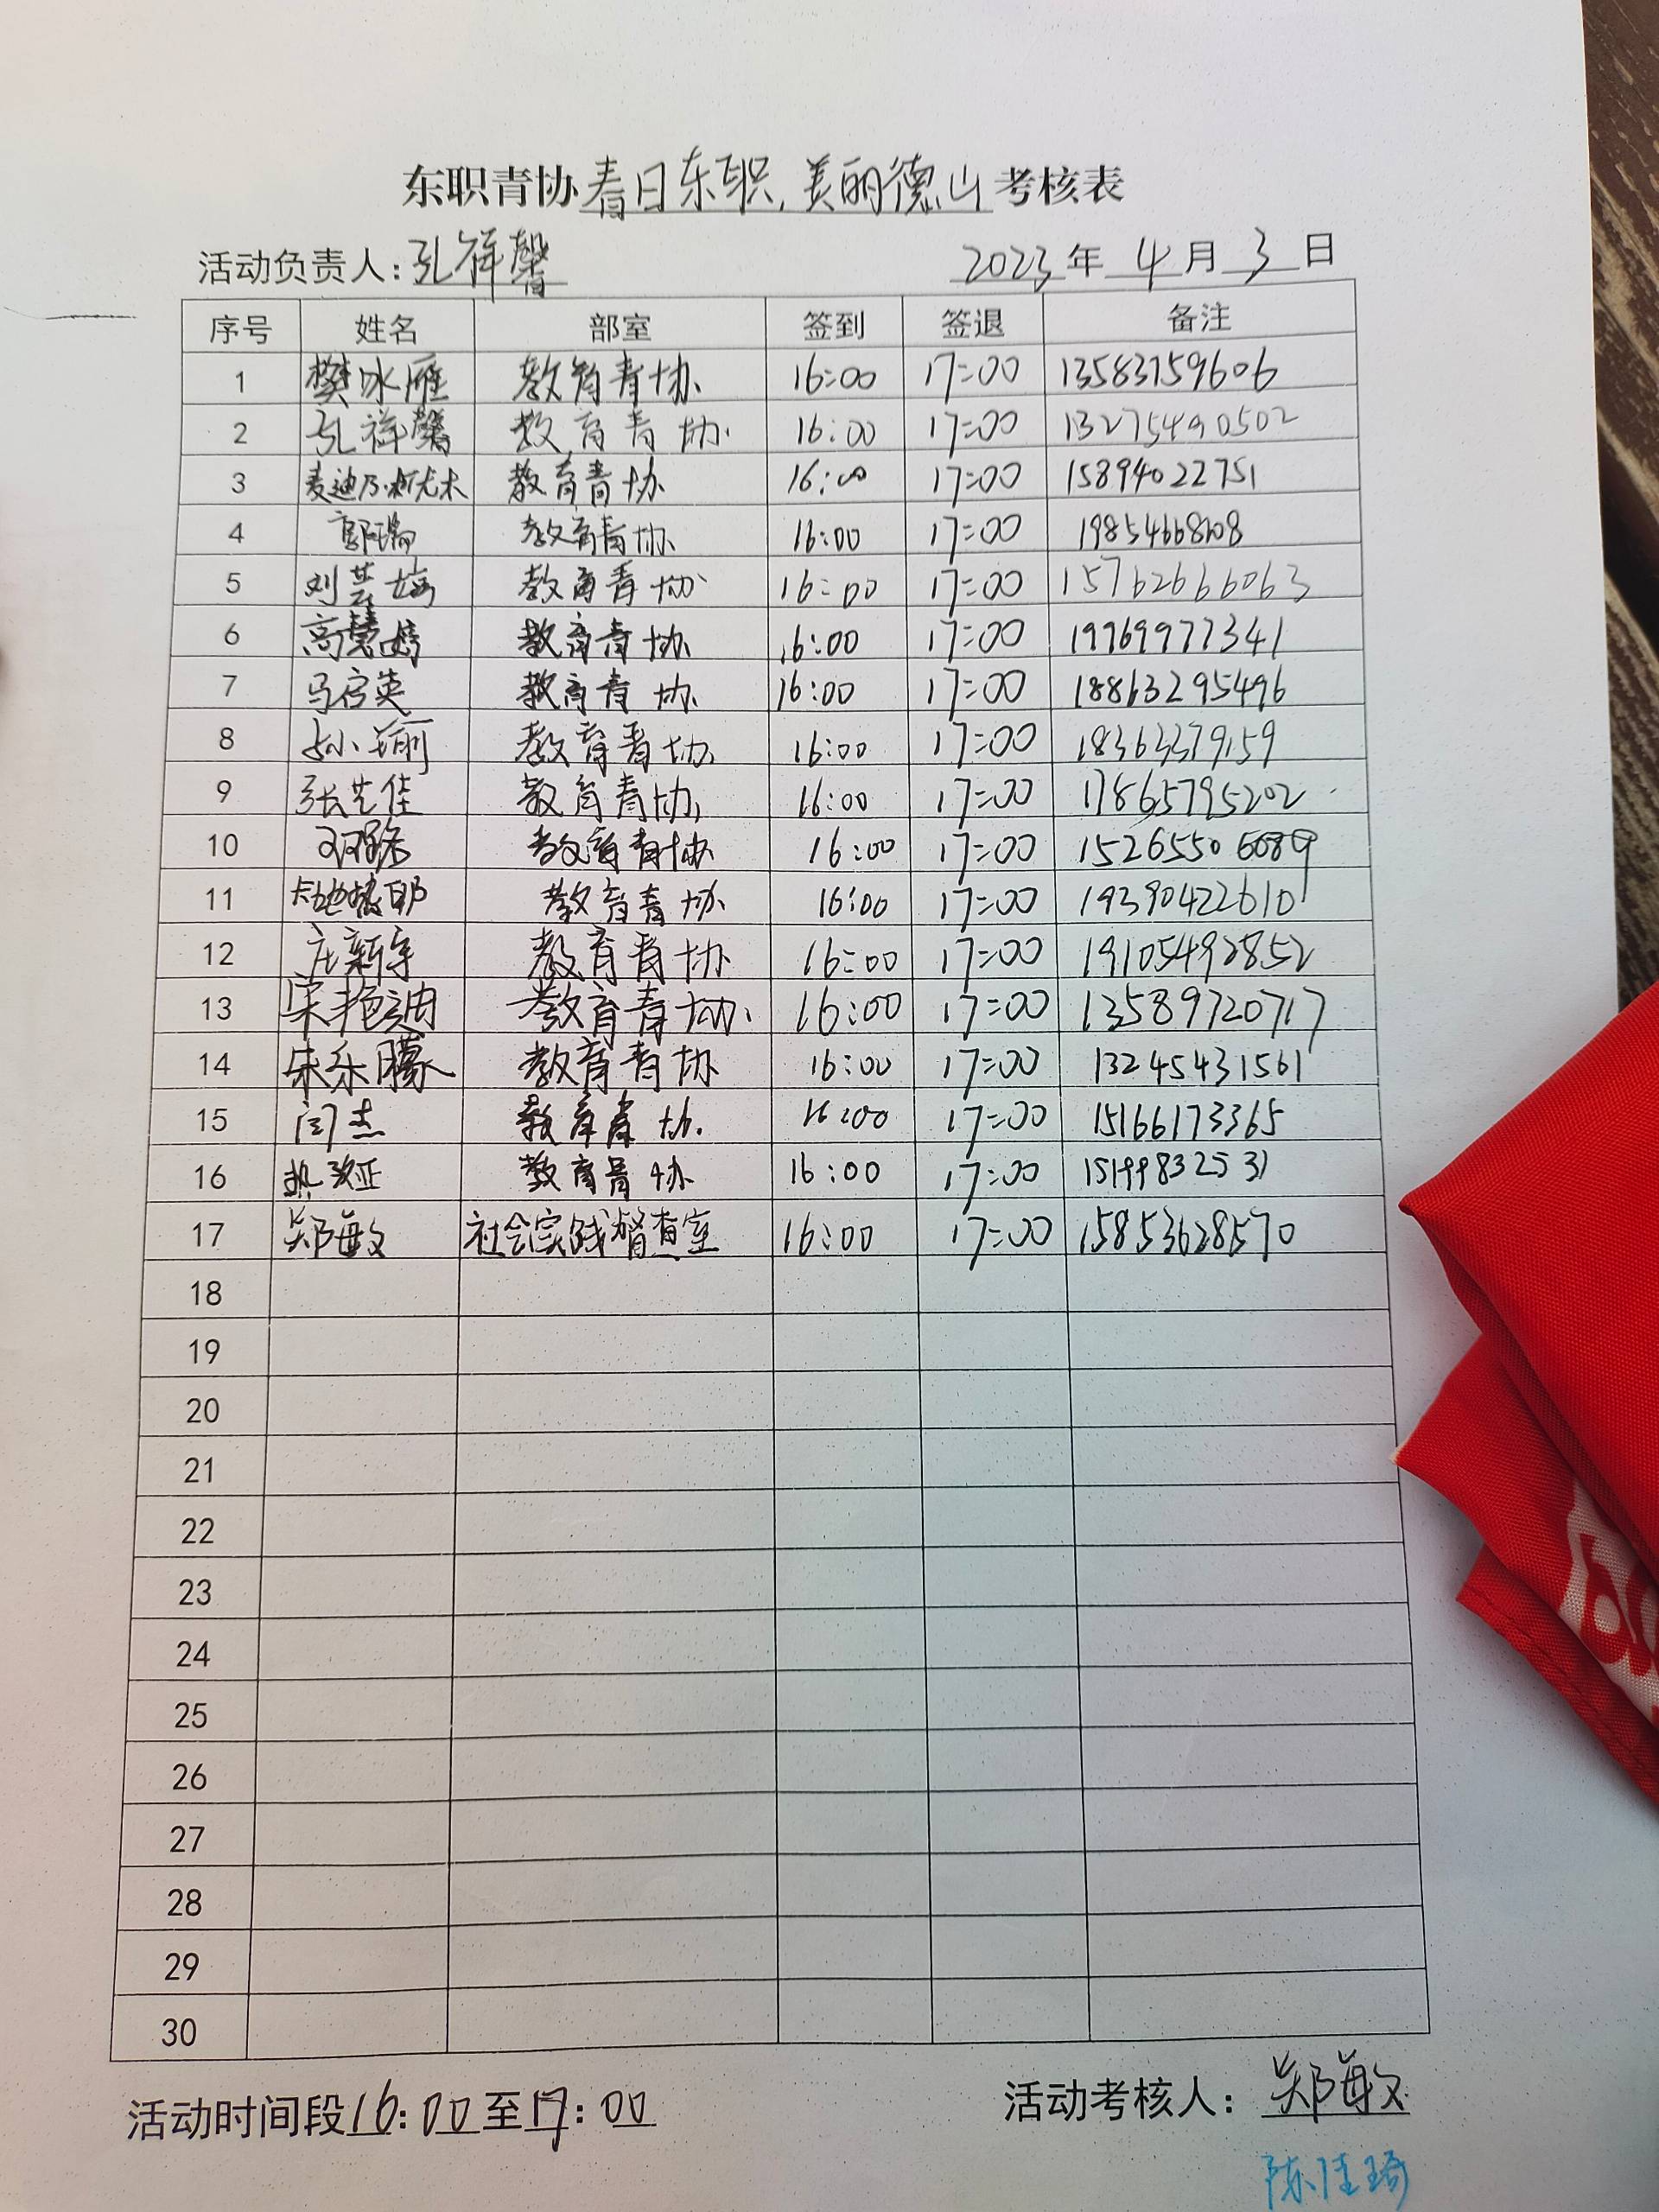 东职青协春日东职,美丽德山考核表
活动负责人:孔祥馨 2023年4月3日
序号 姓名 部室 签到 签退 备注
1 樊冰雁 教育青协 16:00 17:00 13583759606
2 孔祥馨 教育青协 16:00 17:00 13275490502
3 教育青协 16:00 17:00 15894022751
4 教育青协 16:00 17:00
5 刘芸梅 教育青协 16:00 17:00 15762666063
6 高慧婷 教育青协 16:00 17:00 19769977341
7 教育青协 16:00 17:00 18863295496
8 孙丽 教育青协 16:00 17:00 18363379159
9 张艺佳 教育青协 16:00 17:00 17865795202
10 邓璐 教育青协 16:00 17:00
11 教育青协 16:00 17:00 19390422610
12 庄新宇 教育青协 16:00 17:00 19105492852
13 宋艳迪 教育青协 16:00 17:00 13589720717
14 朱乐朦 教育青协 16:00 17:00 13245431561
15 闫杰 教育青协 16:00 17:00 15166173365
16 热孜亚 教育青协 16:00 17:00 15199832531
17 郑敏 社会实践督查室 16:00 17:00 15853628570
18
19
20
21
22
23
24
25
26
27
28
29
30
活动时间段16:00至17:00 活动考核人:郑敏
陈佳琦